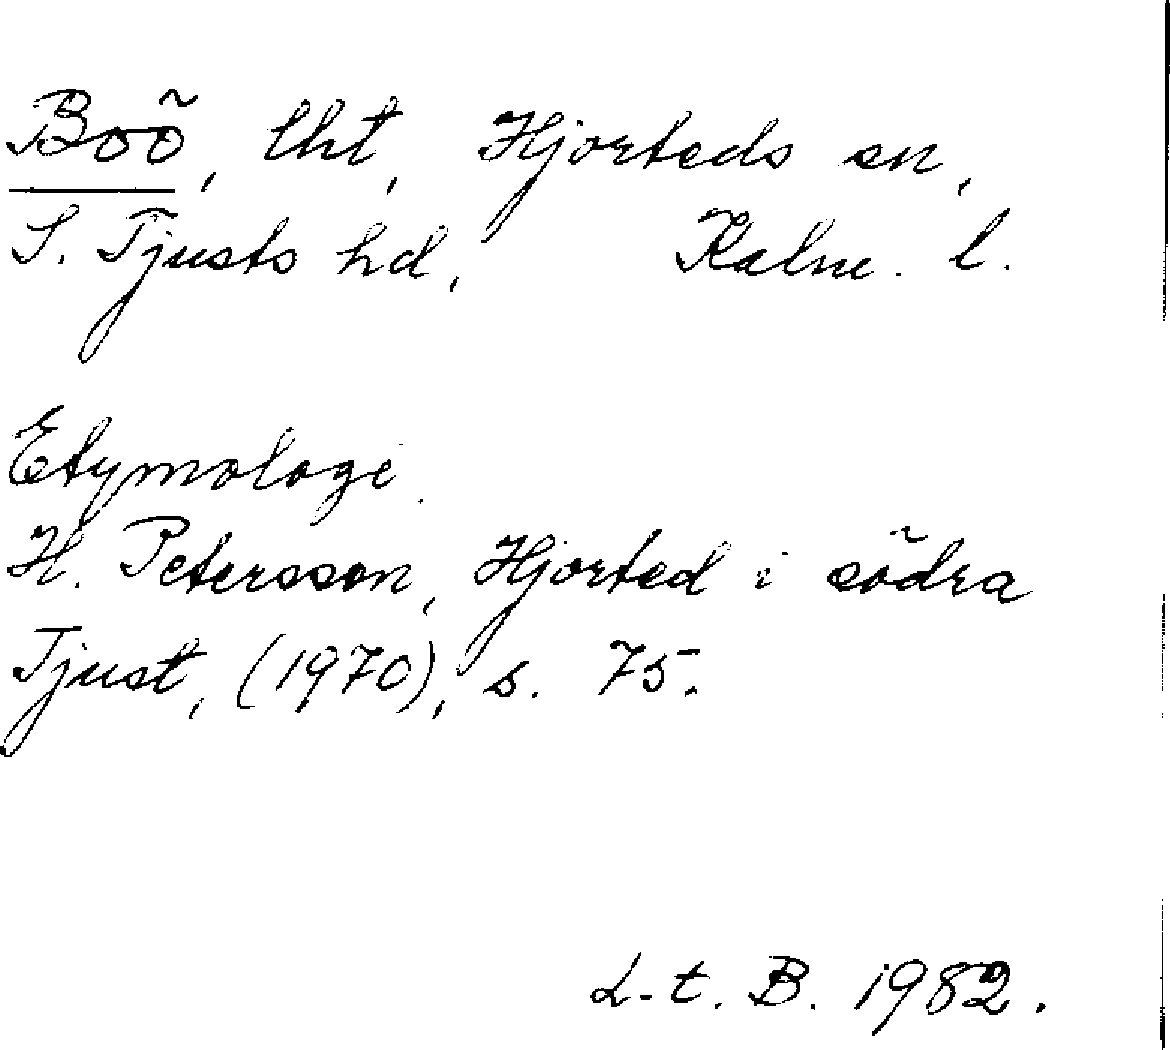 Boö, lht, Hjorteds sn,
S. Tjusts hd, Kalm. l.
Etymologi.
H. Petersson, Hjorted i södra
Tjust, (1970), s. 75.
L-t. B. 1982.